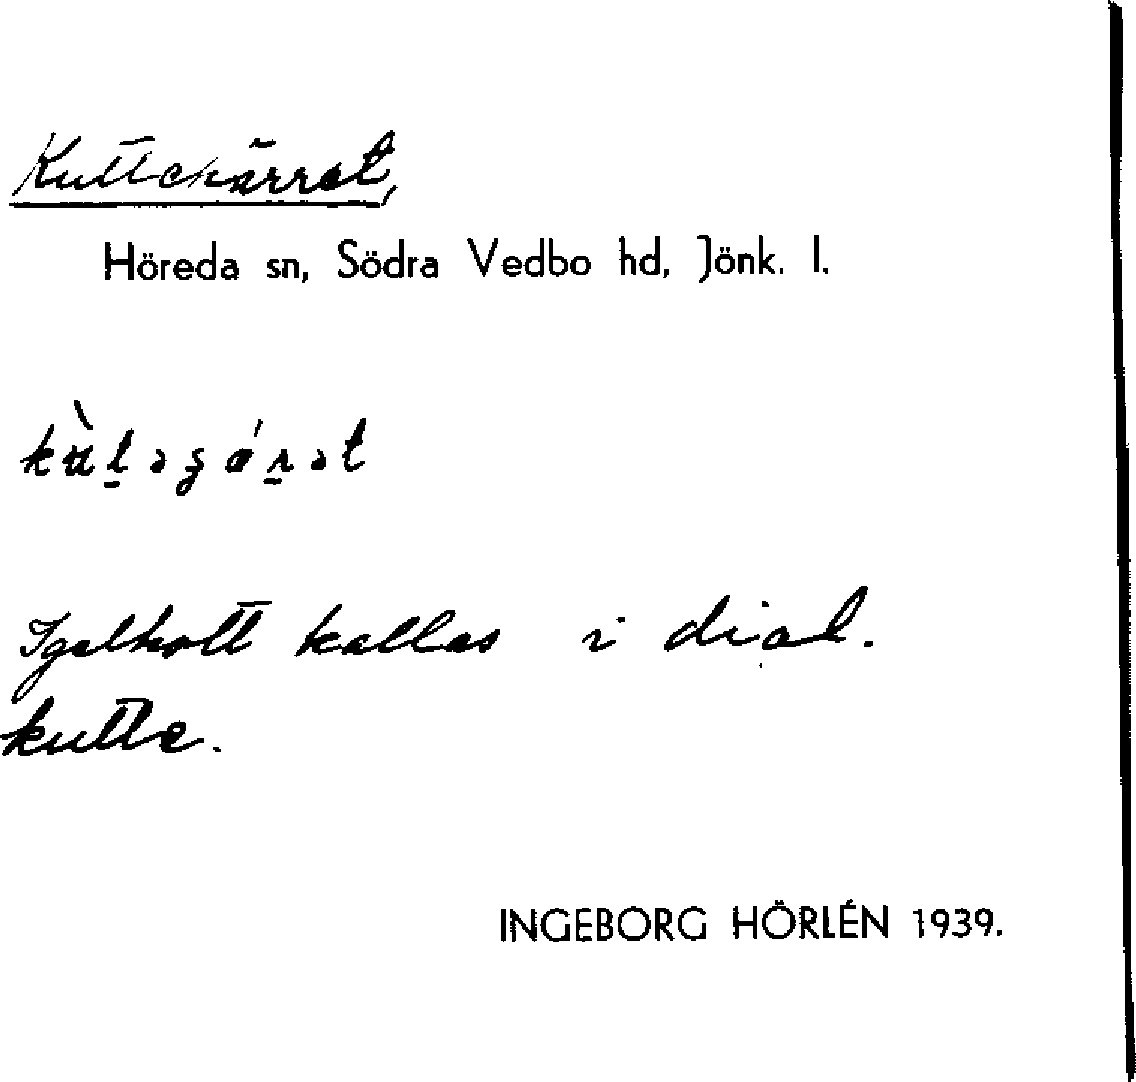 Kuttekärret,
Höreda sn, Södra Vedbo hd, Jönk. l.
Igelkott kallas i dial.
kutte.
INGEBORG HÖRLÉN 1939.